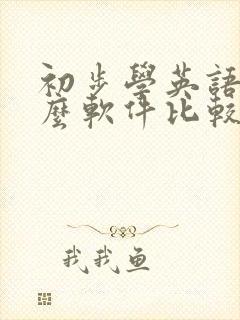 初步學英語
麼軟件比較
我我魚